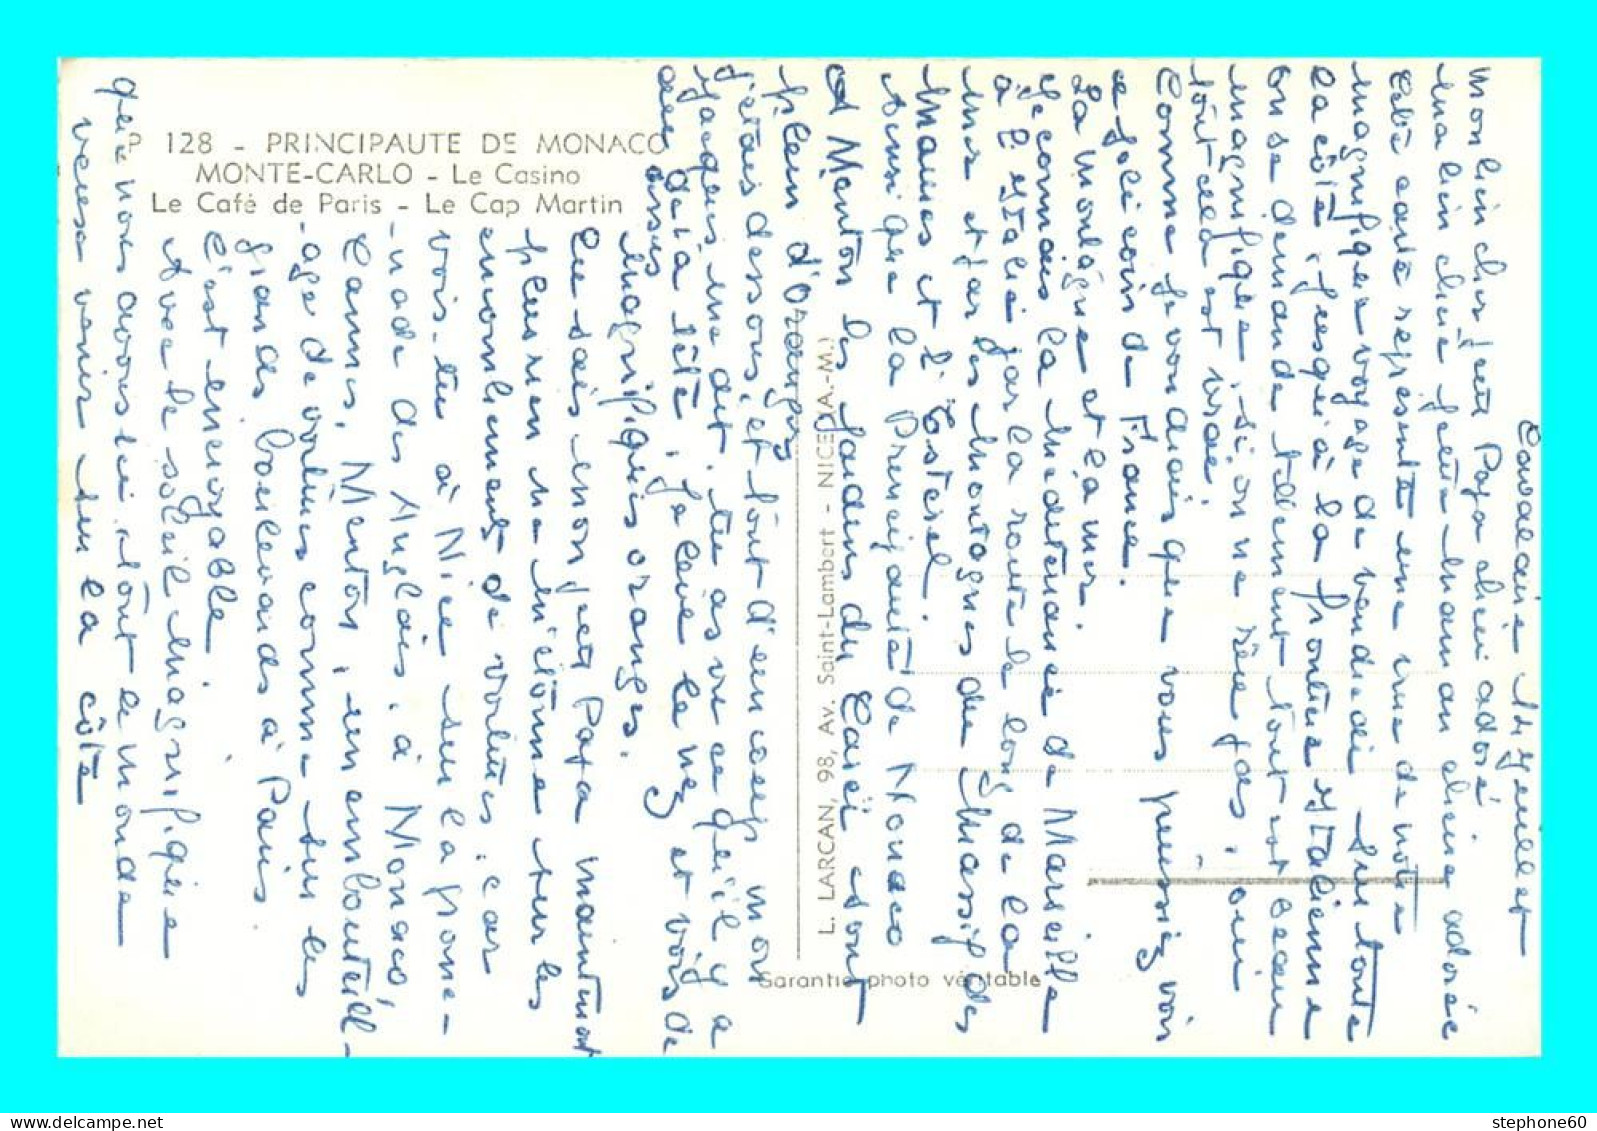 P 128 - PRINCIPAUTE DE MONACO
MONTE-CARLO - Le Casino
Le Café de Paris - Le Cap Martin
L. LARCAN, 98, Av. Saint-Lambert - NICE (A.-M.)
Garantie photo véritable
Cavalaire 14 Juillet
Mon bien cher petit Papa chéri adoré.
Ma bien chère petite Maman chérie adorée
Cette carte représente une vue de notre
magnifique voyage de vendredi sur toute
la côte, jusqu'à la frontière Italienne
on se demande tellement tout est beau
magnifique, si on ne rêve pas, oui
tout cela est vrai.
Comme je voudrais que vous puissiez voir
ce joli coin de France.
La montagne et la mer.
Je connais la méditerranée de Marseille
à l'Italie par la route le long de la
mer et par les montagnes du Massif des
Maures et l'Esterel.
Ainsi que la Principauté de Monaco
A Menton les jardins du Casino sont
plein d'orangers
j'étais dessous, et tout d'un coup mon
Jacques me dit, tu as vu ce qu'il y a
au dessus de ta tête, je lève le nez et vois de
magnifiques oranges.
Tu sais mon petit Papa maintenant
plus rien ne m'étonne sur les
encombrements de voitures, car
vois-tu à Nice sur la prome-
-nade des Anglais, à Monaco,
Cannes, Menton, un embouteill-
-age de voitures comme sur les
grands boulevards à Paris.
C'est incroyable
Avec le soleil magnifique
que nous avons ici, tout le monde
veut venir sur la côte
stephone60